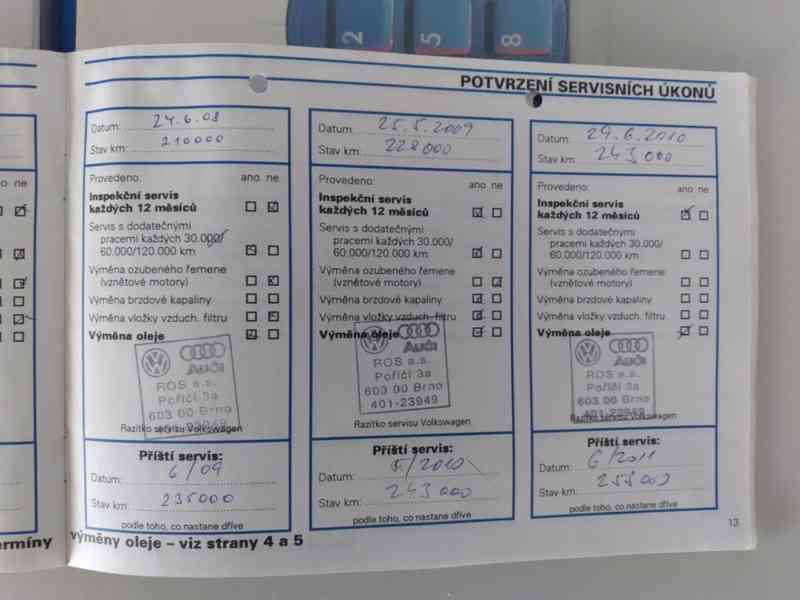 2
5
8
POTVRZENÍ SERVISNÍCH ÚKONŮ
Datum: 24.6.08
Stav km: 210000
Provedeno: ano ne
Inspekční servis
každých 12 měsíců
Servis s dodatečnými
pracemi každých 30.000/
60.000/120.000 km
Výměna ozubeného řemene
(vznětové motory)
Výměna brzdové kapaliny
Výměna vložky vzduch. filtru
Výměna oleje
Audi
ROS a.s.
Poříčí 3a
603 00 Brno
Razítko servisu Volkswagen
Příští servis:
Datum: 6/09
Stav km: 235000
podle toho, co nastane dříve
Datum: 25.5.2009
Stav km: 228000
Provedeno: ano ne
Inspekční servis
každých 12 měsíců
Servis s dodatečnými
pracemi každých 30.000/
60.000/120.000 km
Výměna ozubeného řemene
(vznětové motory)
Výměna brzdové kapaliny
Výměna vložky vzduch. filtru
Výměna oleje
Audi
ROS a.s.
Poříčí 3a
603 00 Brno
401-23949
Razítko servisu Volkswagen
Příští servis:
Datum: 5/2010
Stav km: 243000
podle toho, co nastane dříve
Datum: 29.6.2010
Stav km: 243000
Provedeno: ano ne
Inspekční servis
každých 12 měsíců
Servis s dodatečnými
pracemi každých 30.000/
60.000/120.000 km
Výměna ozubeného řemene
(vznětové motory)
Výměna brzdové kapaliny
Výměna vložky vzduch. filtru
Výměna oleje
Audi
ROS a.s.
Poříčí 3a
603 00 Brno
401-23949
Razítko servisu Volkswagen
Příští servis:
Datum: 6/2011
Stav km: 258000
podle toho, co nastane dříve
13
ano ne
ermíny výměny oleje – viz strany 4 a 5